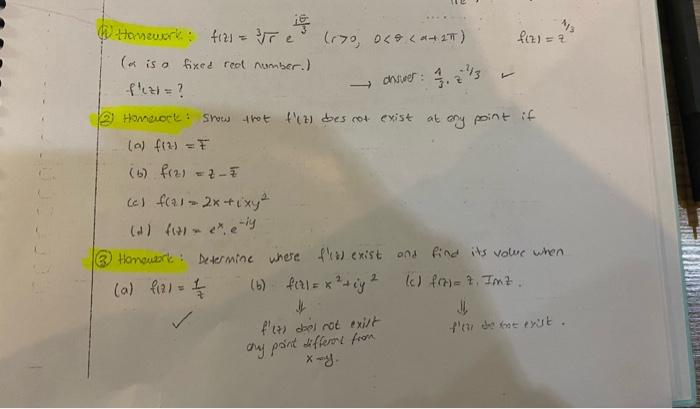 ① Homework: f(z) = ∛r e^{iθ/3} (r>0, 0<θ<α+2π) f(z) = z^{1/3}
(α is a fixed real number.)
f'(z) = ? → answer: 1/3 . z^{-2/3} ✓
② Homework: Show that f'(z) does not exist at any point if
(a) f(z) = z̅
(b) f(z) = z - z̅
(c) f(z) = 2x + ixy²
(d) f(z) = eˣ. e^{-iy}
③ Homework: Determine where f'(z) exist and find its value when
(a) f(z) = 1/z (b) f(z) = x² + iy² (c) f(z) = z. Imz.
✓ ⇓ ⇓
f'(z) does not exist f'(z) exist.
any point different from
x=y.